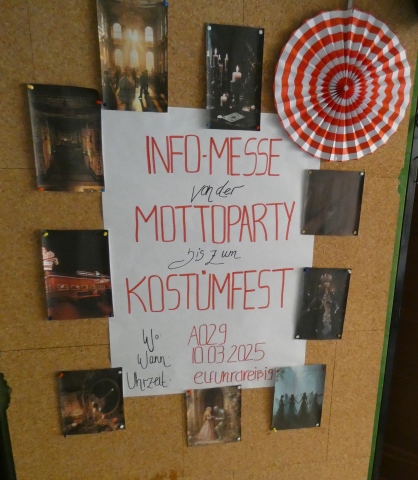 INFO-MESSE
von der
MOTTOPARTY
bis zum
KOSTÜMFEST
Wo: A029
Wann: 10.03.2025
Uhrzeit: elfuhrdreißig